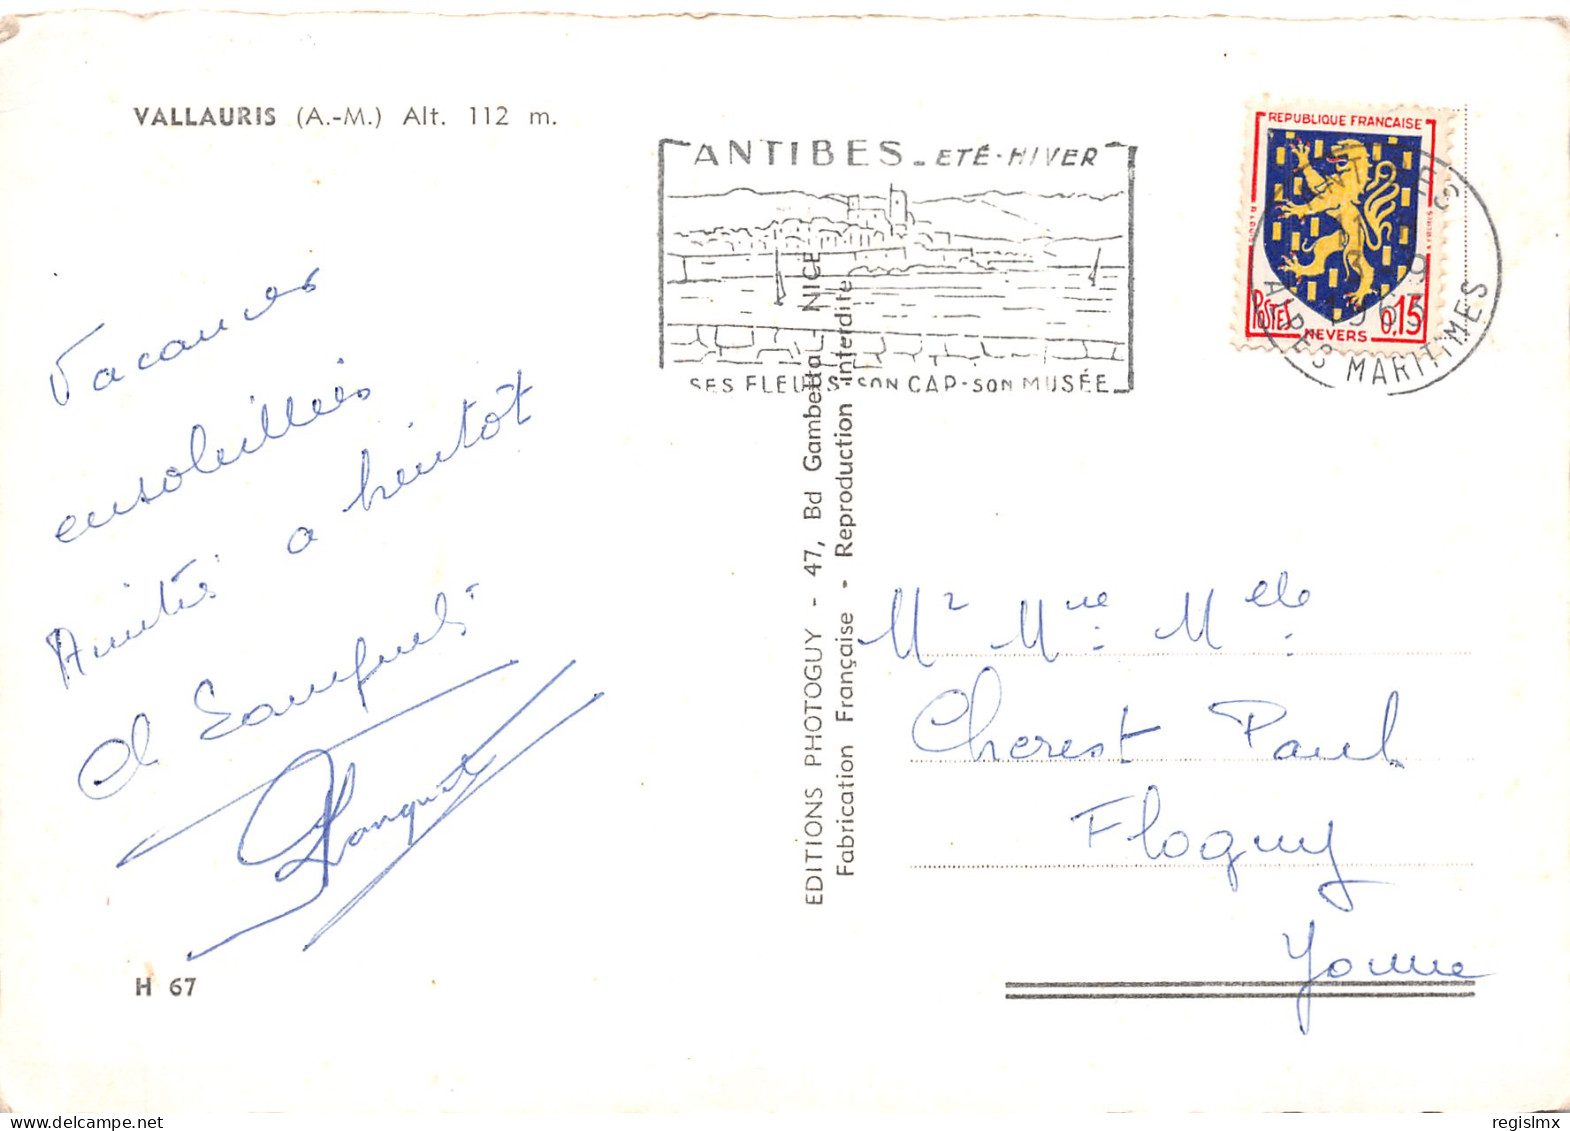 VALLAURIS (A.-M.) Alt. 112 m.
ANTIBES - ETÉ - HIVER
SES FLEURS - SON CAP - SON MUSÉE
REPUBLIQUE FRANÇAISE
POSTES 0,15
NEVERS
ALPES MARITIMES
Vacances
ensoleillées
Amitiés a bientôt
EDITIONS PHOTOGUY - 47, Bd Gambetta - NICE
Fabrication Française - Reproduction interdite
Mr Mme Melle
Cherest Paul
Flogny
Yonne
H 67
regislmx